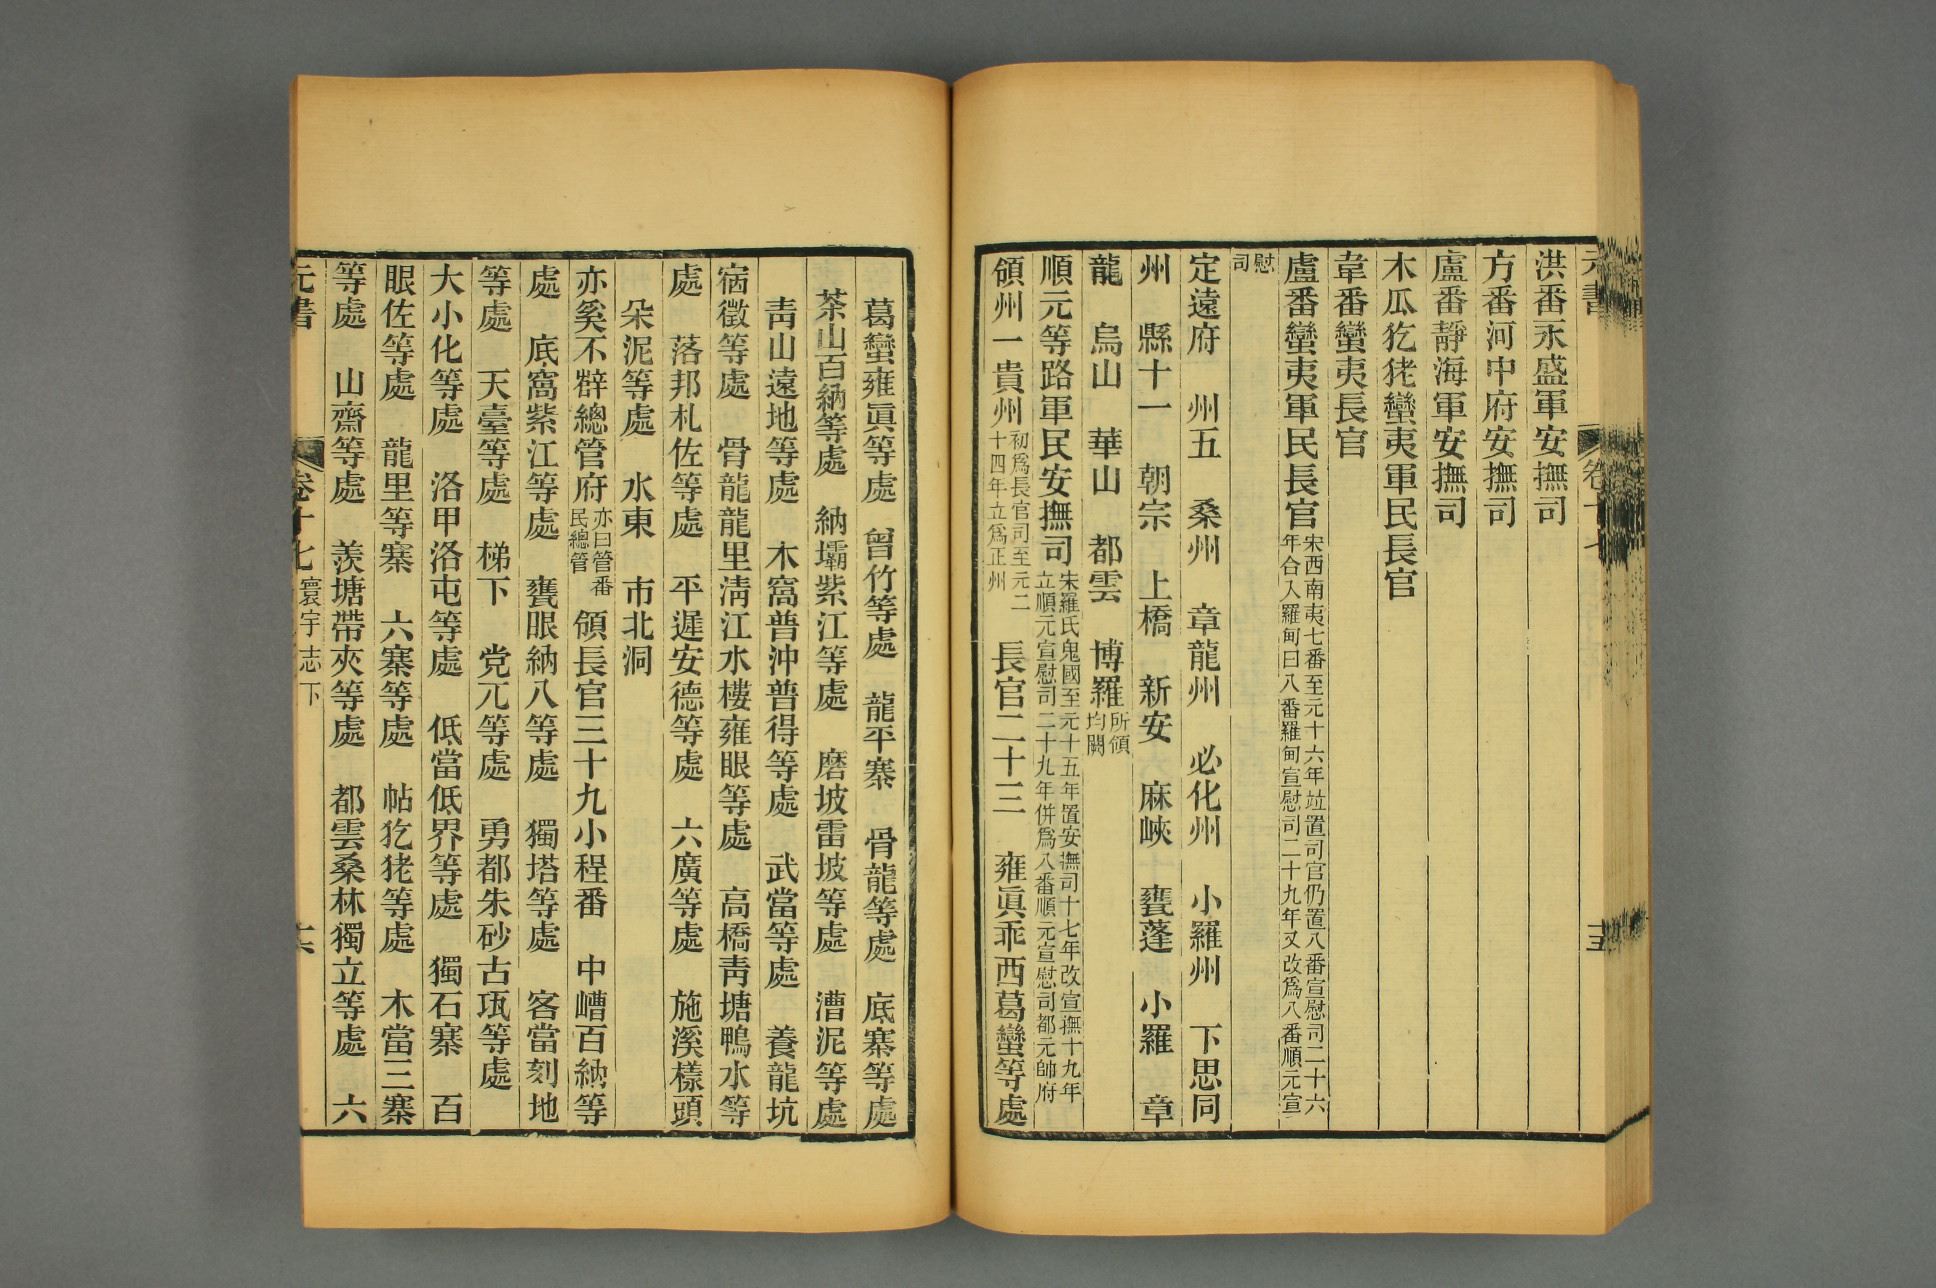 元書 卷十七 十五
洪番永盛軍安撫司
方番河中府安撫司
盧番靜海軍安撫司
木瓜犵狫蠻夷軍民長官
韋番蠻夷長官
盧番蠻夷軍民長官宋西南夷七番至元十六年竝置司官仍置八番宣慰司二十六年合入羅甸曰八番羅甸宣慰司二十九年又改爲八番順元宣
慰司
定遠府 州五 桑州 章龍州 必化州 小羅州 下思同
州 縣十一 朝宗 上橋 新安 麻峽 甕蓬 小羅 章
龍 烏山 華山 都雲 博羅所領均闕
順元等路軍民安撫司宋羅氏鬼國至元十五年置安撫司十七年改宣撫十九年立順元宣慰司二十九年併爲八番順元宣慰司都元帥府
領州一貴州初爲長官司至元二十四年立爲正州 長官二十三 雍眞乖西葛蠻等處
葛蠻雍眞等處 曾竹等處 龍平寨 骨龍等處 底寨等處
茶山百納等處 納壩紫江等處 磨坡雷坡等處 漕泥等處
靑山遠地等處 木窩普沖普得等處 武當等處 養龍坑
宿徵等處 骨龍龍里淸江水樓雍眼等處 高橋靑塘鴨水等
處 落邦札佐等處 平遲安德等處 六廣等處 施溪樣頭
朵泥等處 水東 市北洞
亦奚不辥總管府亦曰管番民總管 領長官三十九小程番 中嶆百納等
處 底窩紫江等處 甕眼納八等處 獨塔等處 客當刻地
等處 天臺等處 梯下 党兀等處 勇都朱砂古瓦等處
大小化等處 洛甲洛屯等處 低當低界等處 獨石寨 百
眼佐等處 龍里等寨 六寨等處 帖犵狫等處 木當三寨
等處 山齋等處 羨塘帶夾等處 都雲桑林獨立等處 六
元書 卷十七 寰宇志下 十六